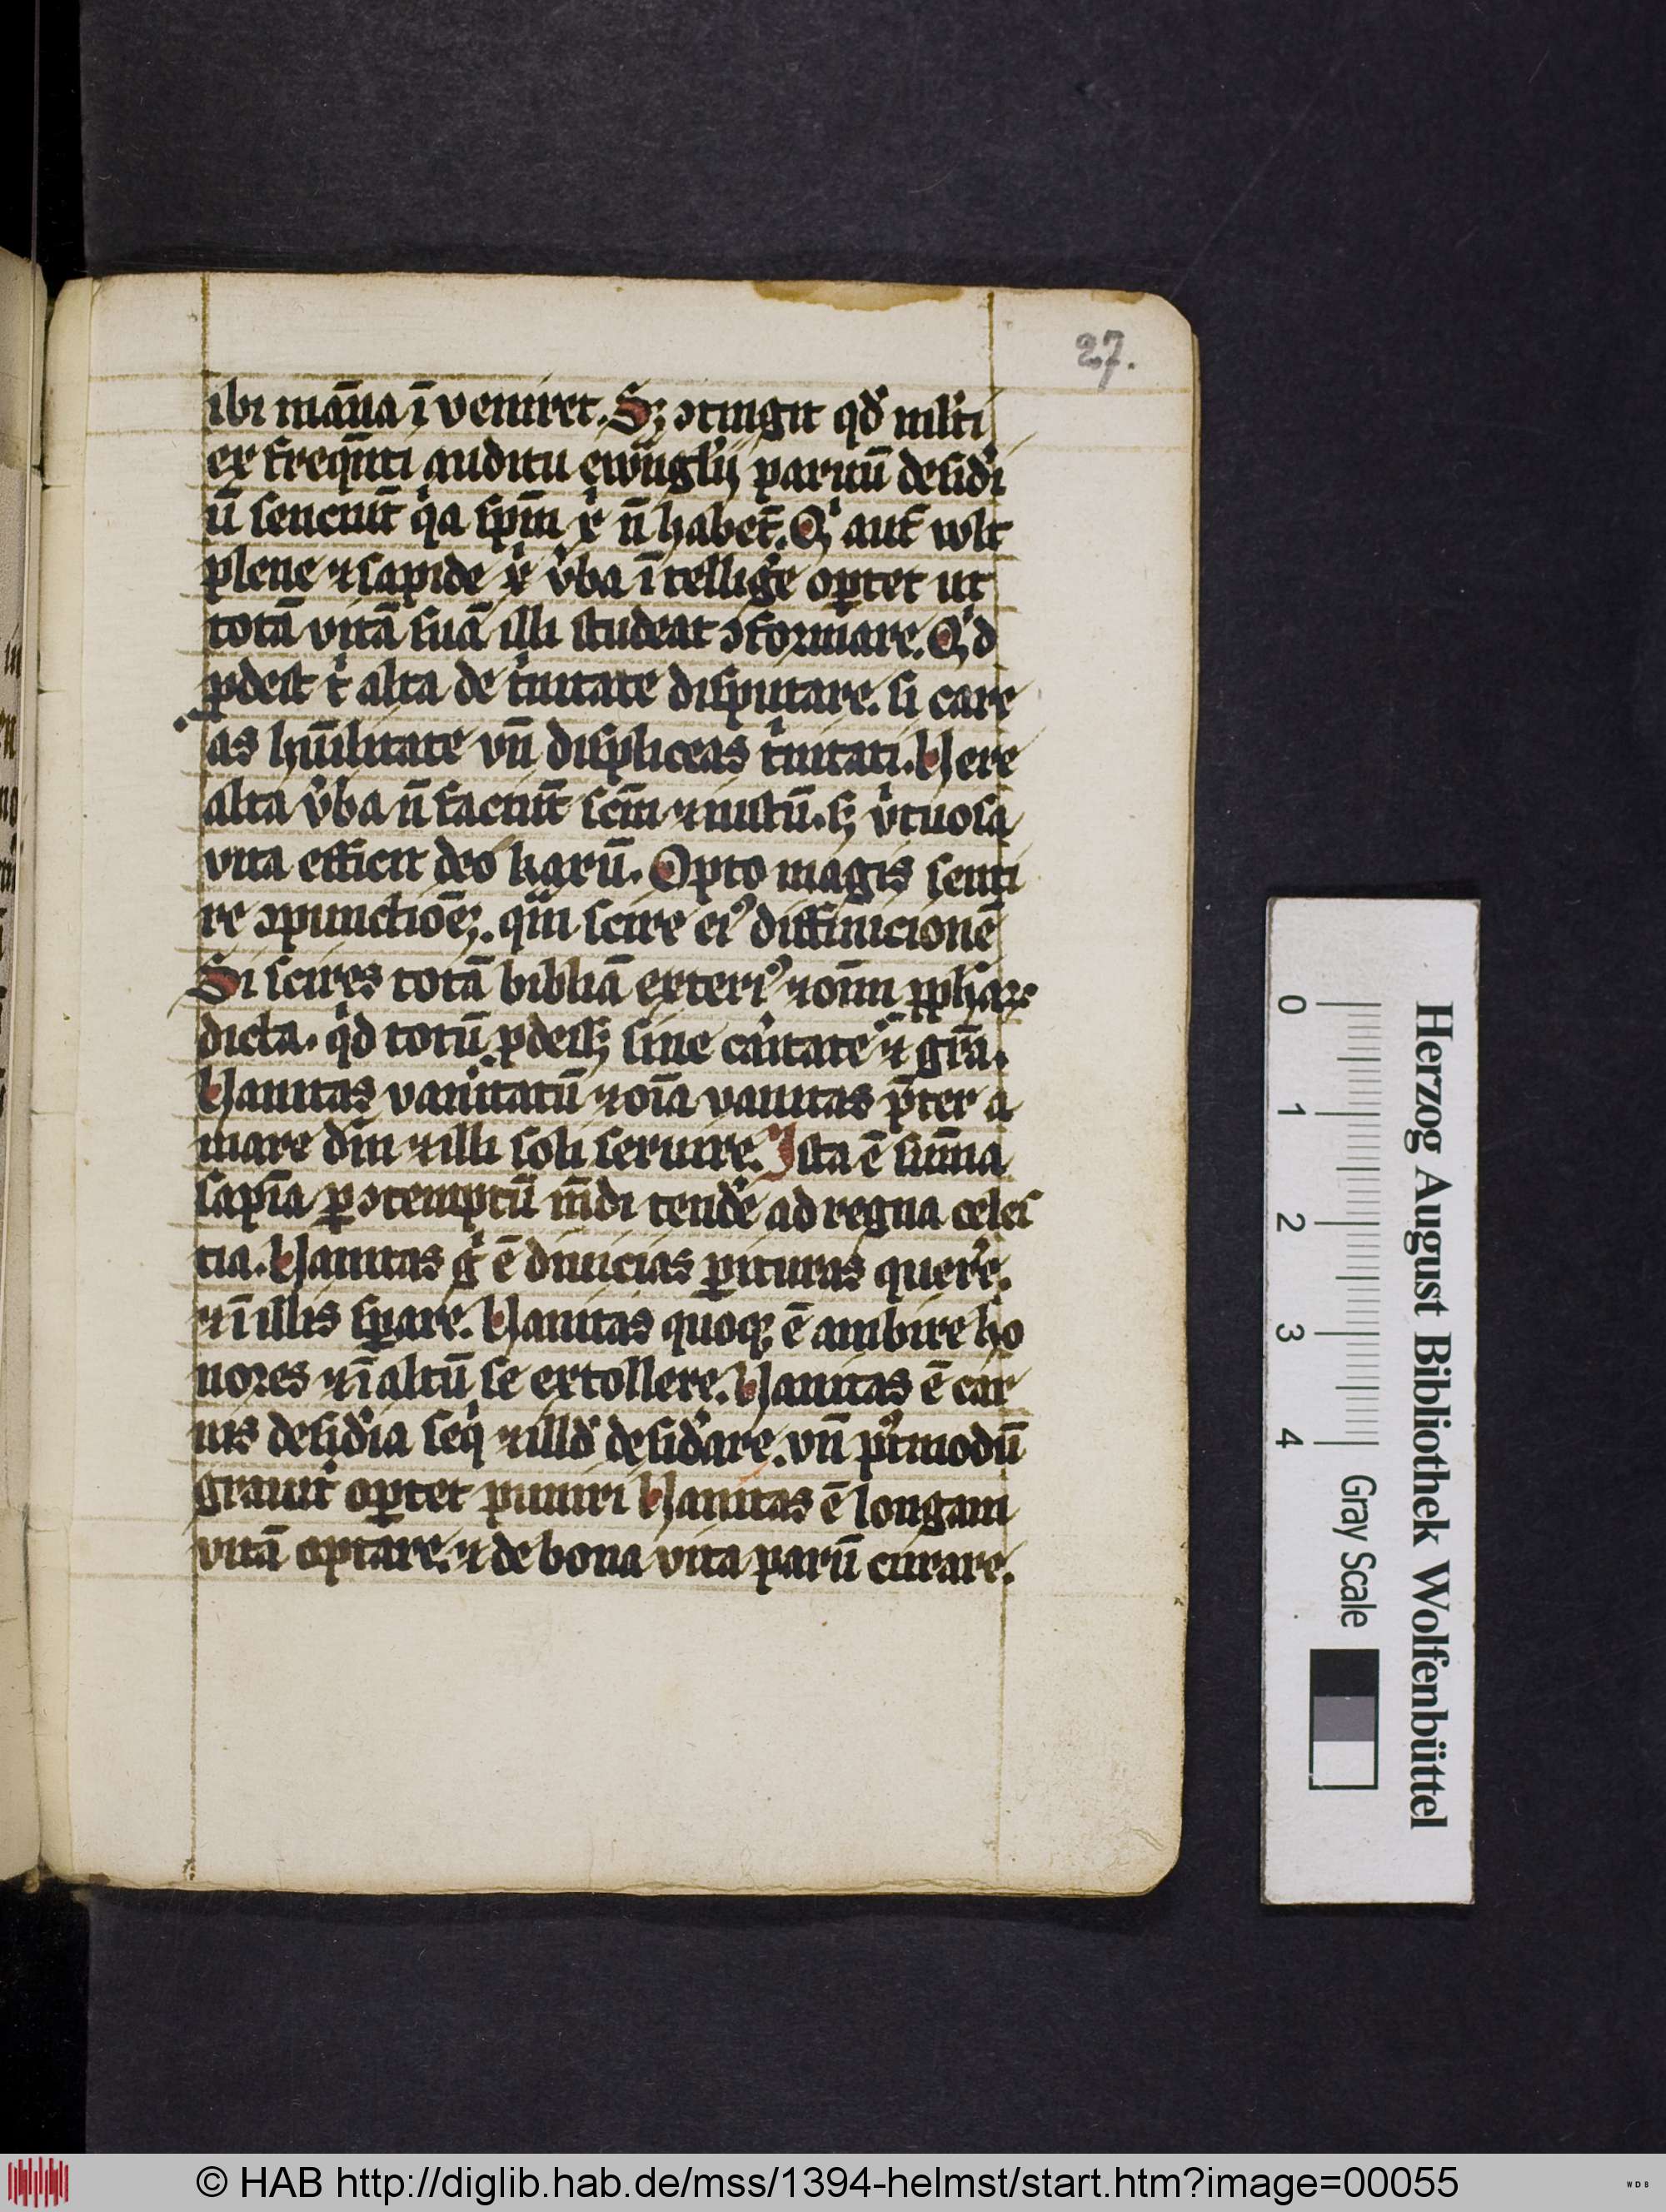 27.
ibi mān̄a ī veniret. Sꝫ ↄtingit qd̛ ml̛ti
ex freq̄nti auditu ewāgl̛ij paruū desid̛i
ū senciūt qͥa sp̄m xͥ n̄ habēt. Qͥ aut̄ wlt
plene ⁊ sapide xͥ v̛ba ī tellig̛e oꝑtet ut
totā vitā suā illi studeat ↄformare. Qͥd
ꝓdest tͥ alta de tͥnitate disputare. si care
as hūilitate vn̄ displiceas tͥnitati. Vere
alta v̛ba n̄ faciūt sc̄m ⁊ iustū. sꝫ v̛tuosa
vita efficit deo karū. Opto magis senti
re ↄpunctiōeꝫ. qͣm scire eiꝰ diffinicionē
Si scires totā bibliā exteriꝰ ⁊ oīm ꝓph̄aꝝ
dicta. qͥd totū ꝓdessꝫ sine cāitate ⁊ gr̄a.
Vanitas vanitatū ⁊ oīa vanitas p̄ter a
mare dm̄ ⁊ illi soli seruire. Ista ē sūma
sapīa ꝑ ↄtemptū mūdi tend̛e ad regna celes
tia. Vanitas gͥ ē diuicias ꝑituras quere̛.
⁊ ī illis sꝑare. Vanitas quoqꝫ ē ambire ho
nores ⁊ ī altū se extollere. Vanitas ē car
nis desid̛ia seqͥ ⁊ illd̛ desid̛are. vn̄ pꝰtmodū
grauit̛ oꝑtet puniri Vanitas ē longam
vitā optare. ⁊ de bona vita parū curare.
Herzog August Bibliothek Wolfenbüttel
0 1 2 3 4 Gray Scale
© HAB http://diglib.hab.de/mss/1394-helmst/start.htm?image=00055
WDB